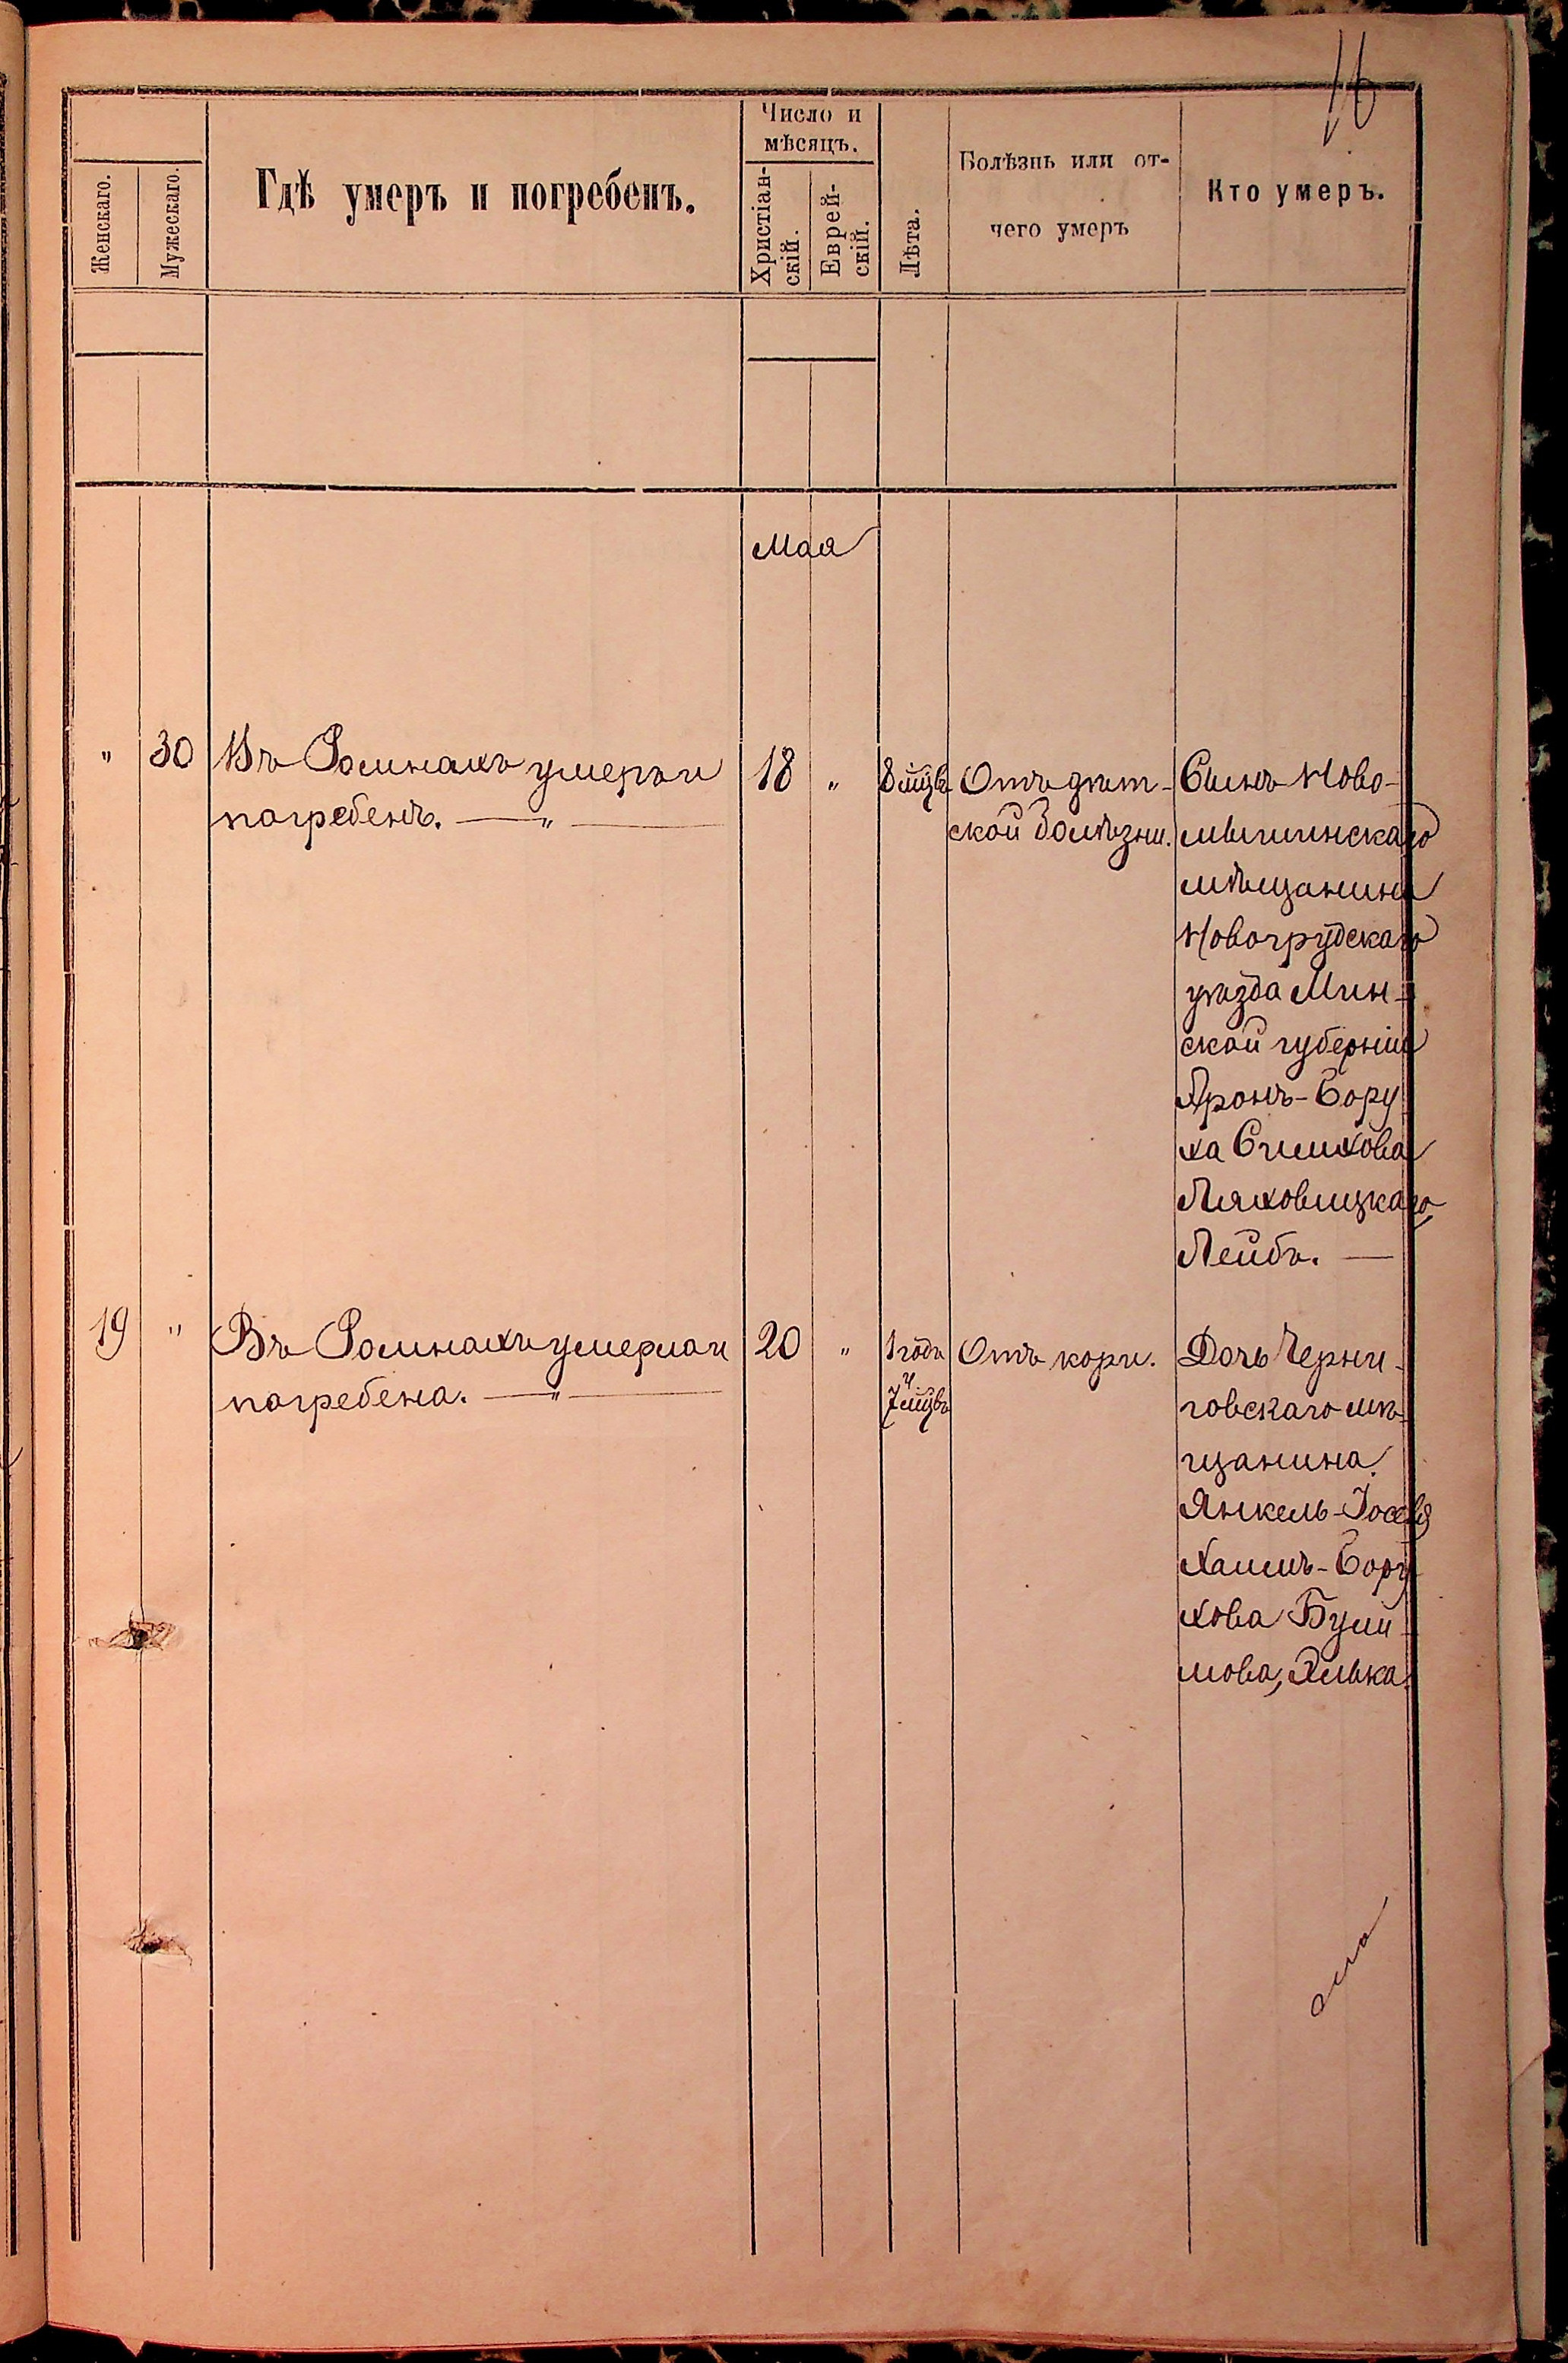 16
Женскаго.
Мужескаго.
Гдѣ умеръ и погребенъ.
Число и
мѣсяцъ.
Христіан-
скій.
Еврей-
скій.
Лѣта.
Болѣзнь или от-
чего умеръ
Кто умеръ.
Мая
" 30 Въ Ромнахъ умеръ и
погребенъ. — " —
18 "
8 мцвъ
Отъ дѣт-
ской болѣзни.
Сынъ Ново-
мышинскаго
мѣщанина
Новогрудскаго
уѣзда Мин-
ской губерніи
Аронъ-Бору
ха Симхова
Ляховицкаго,
Лейбъ. —
19 " Въ Ромнахъ умерла и
погребена. — " —
20 "
1 годъ
и
7 мцвъ
Отъ кори.
Дочь Черни-
говскаго мѣ-
щанина
Янкель-Іосефа
Хаимъ-Бору
хова
мова, Элька.